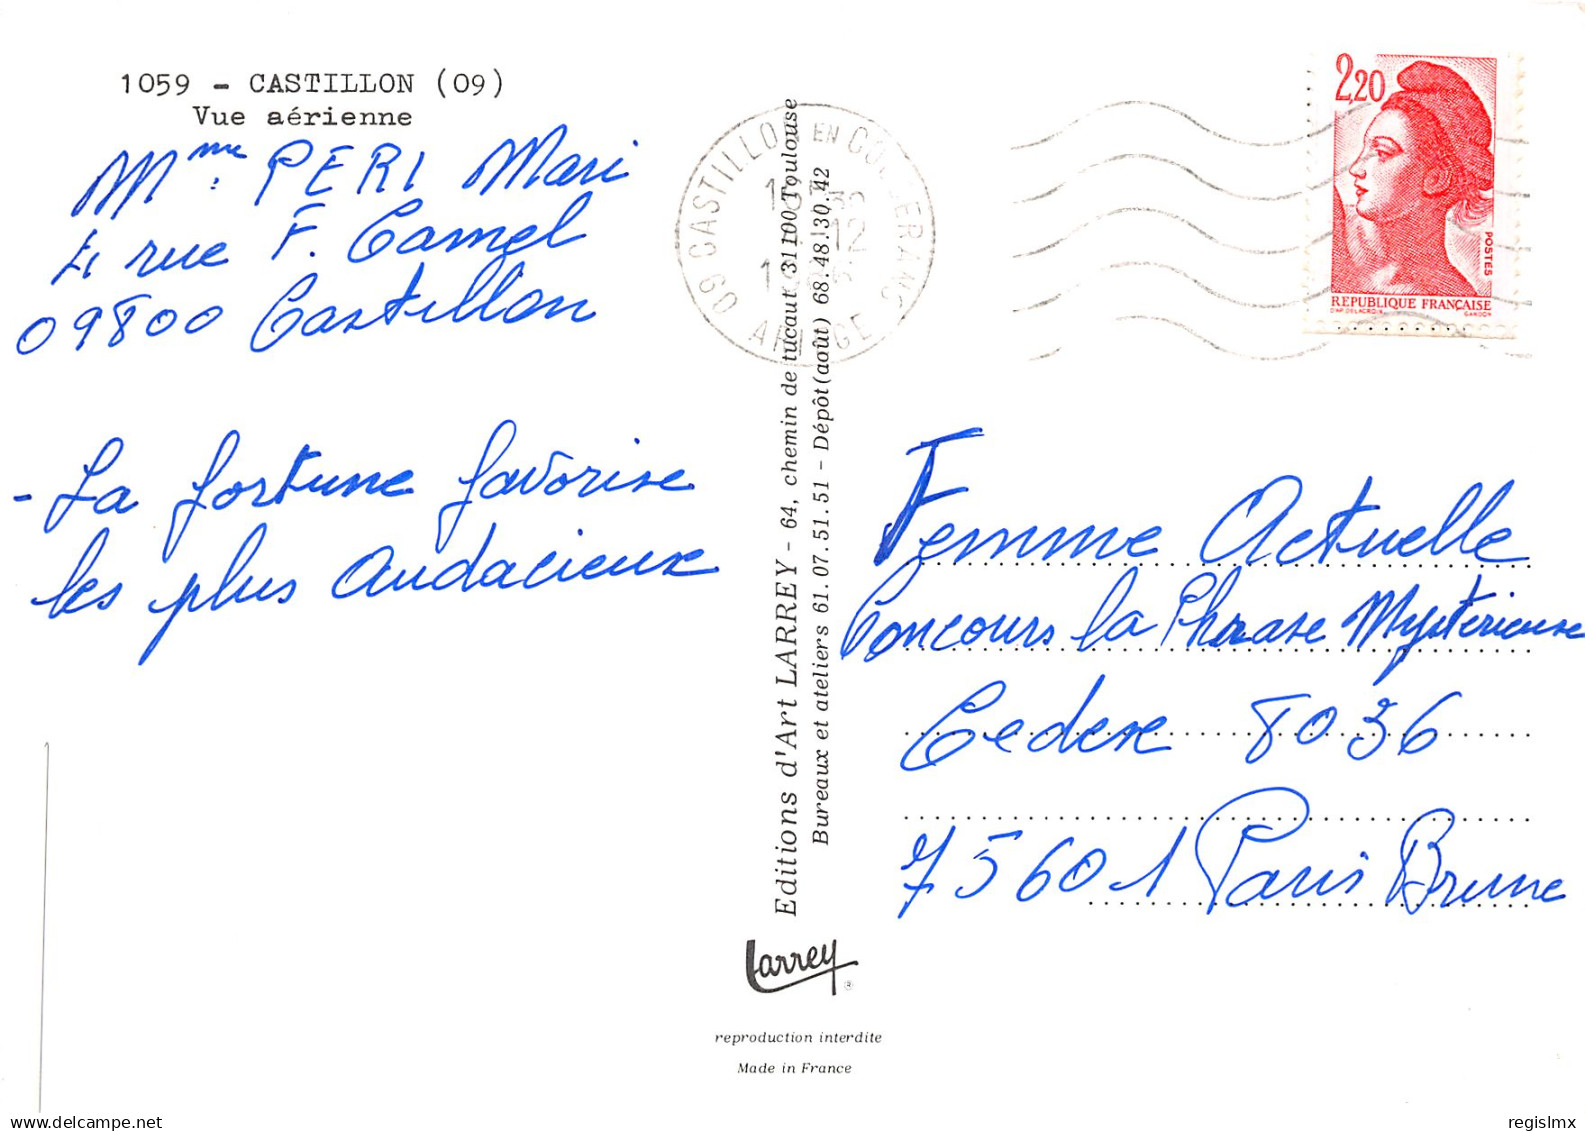 1059 - CASTILLON (09)
Vue aérienne
Mme PERI Mari
4 rue F. Camel
09800 Castillon
- La fortune favorise
les plus Audacieux
09 CASTILLON EN COUSERANS
ARIEGE
Editions d'Art LARREY - 64, chemin de tucaut 31100 Toulouse
Bureaux et ateliers 61.07.51.51 - Dépôt (août) 68.48.30.42
Larrey
reproduction interdite
Made in France
2,20
POSTES
REPUBLIQUE FRANÇAISE
D'AP. DELACROIX
GANDON
Femme Actuelle
Concours la Phrase Mystérieuse
Cedex 8036
75601 Paris Brune
delcampe.net
regislmx